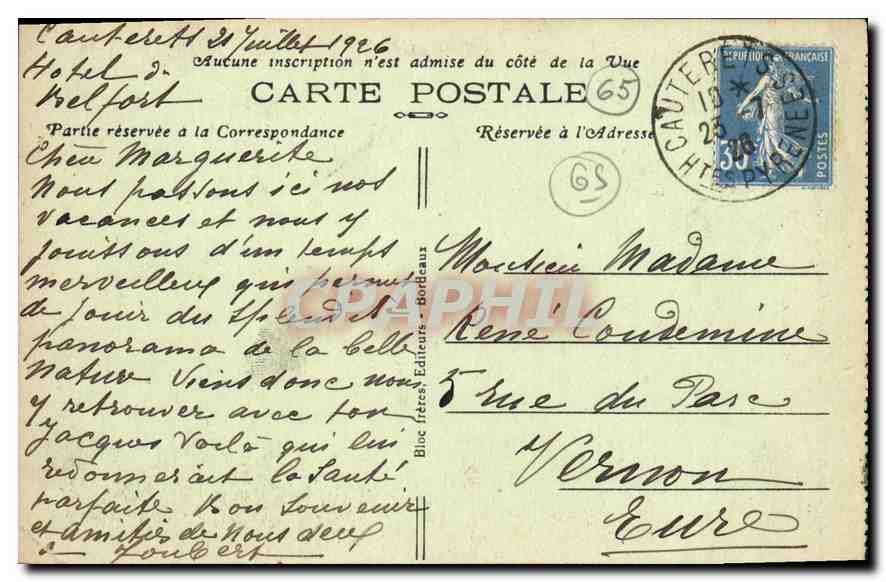 Cauterets 21 Juillet 1926
Hotel de
Belfort
Aucune inscription n'est admise du côté de la Vue
CARTE POSTALE
65
Partie réservée à la Correspondance
Réservée à l'Adresse
CAUTERETS
10 * 7
23 26
HTES PYRENEES
REPUBLIQUE FRANÇAISE
30
POSTES
65
Chère Marguerite
Nous passons ici nos
vacances et nous y
jouissons d'un temps
merveilleux qui permet
de jouir du splendide
panorama de la belle
nature Viens donc nous
y retrouver avec ton
Jacques Voilà qui lui
redonnerait la Santé
parfaite Bon Souvenir
et amitiés de Nous deux
Joubert
Bloc frères, Editeurs, Bordeaux
Monsieur Madame
René Condemine
5 rue du Parc
Vernon
Eure
CPAPHIL